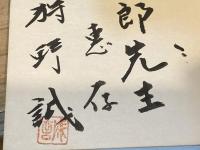 郎先生
惠存
狩野誠